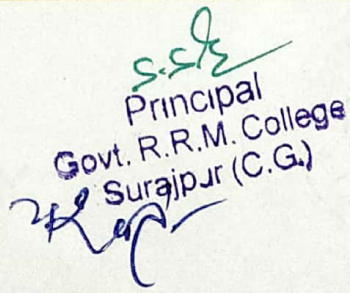 Principal
Govt. R.R.M. College
Surajpur (C.G.)